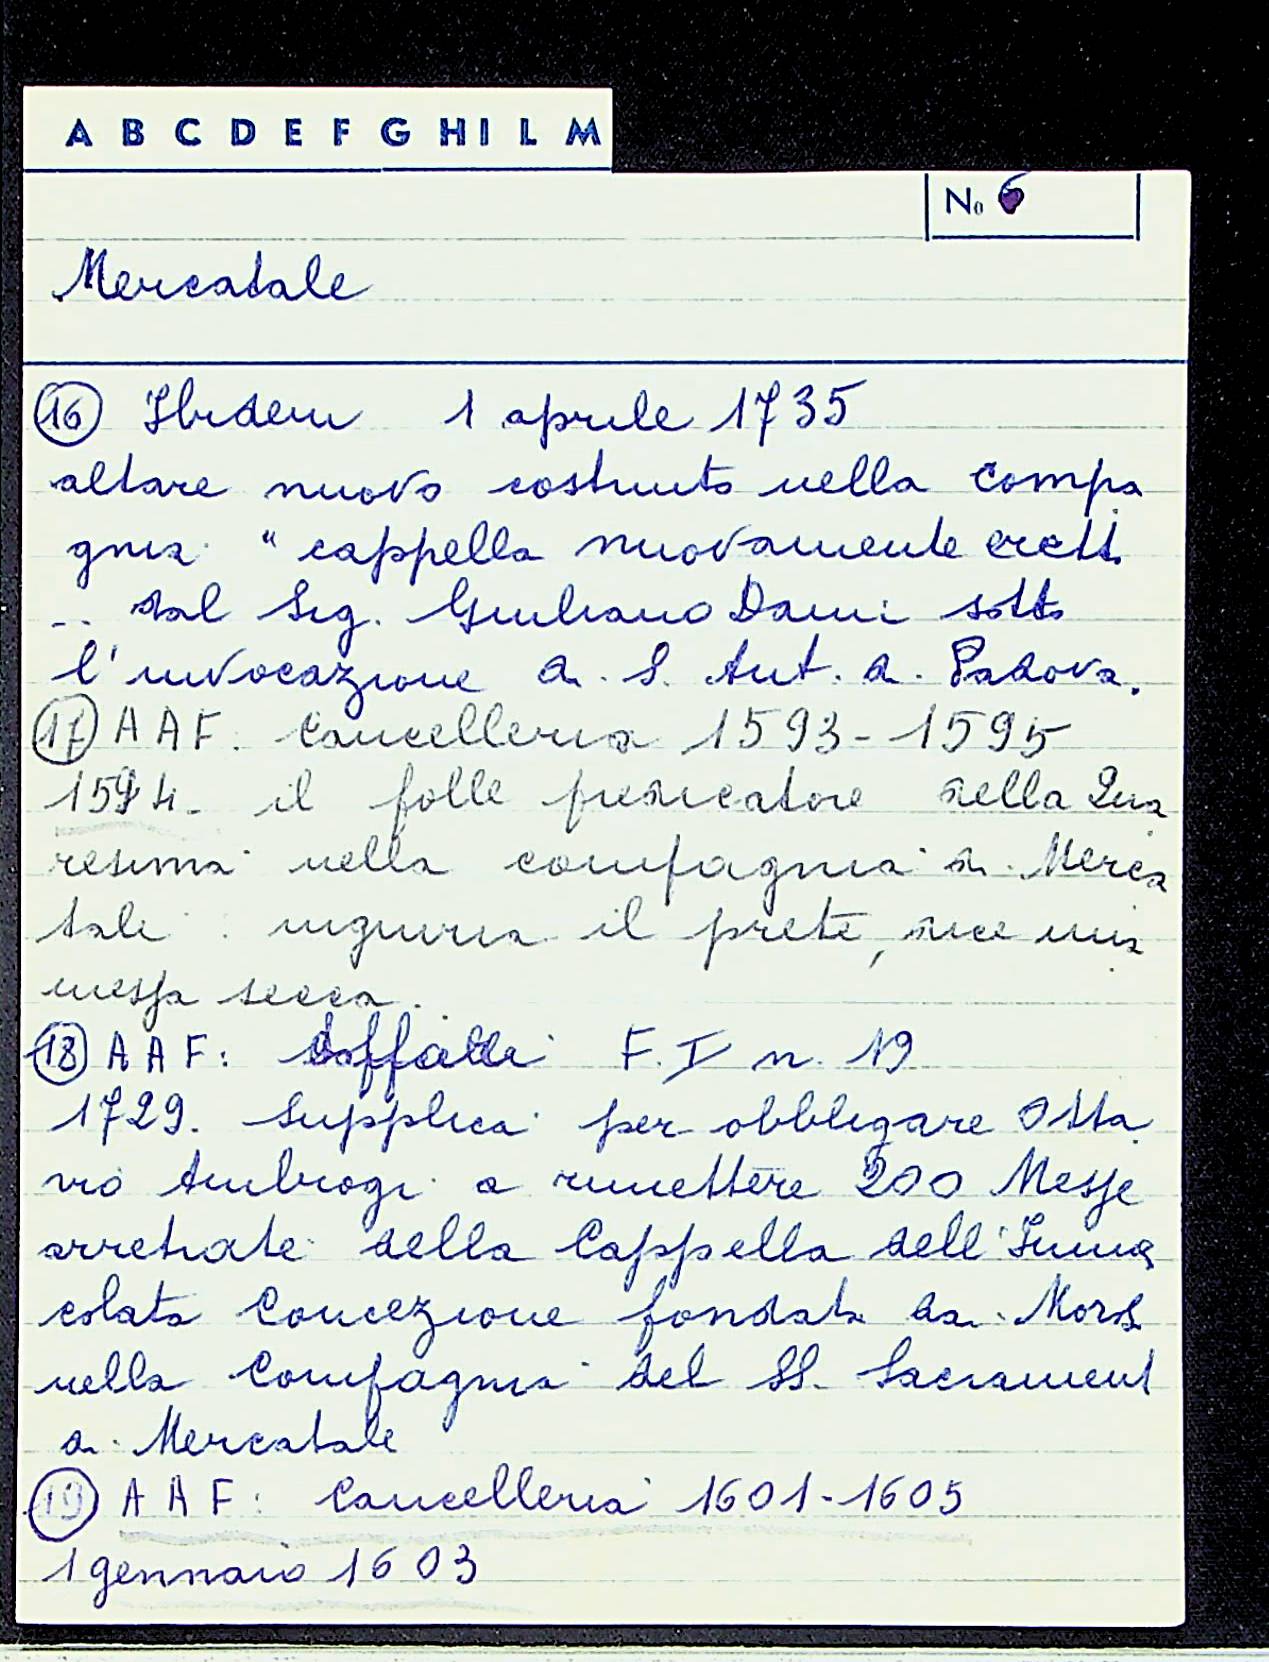 A B C D E F G H I L M
No 6
Mercatale
16 Ibidem 1 aprile 1735
altare nuovo costruito nella compa
gnia " cappella nuovamente erett.
.. dal Sig. Giuliano Dami sotto
l'invocazione di S. Ant. di Padova.
17 AAF. Cancelleria 1593-1595
1594. il folle predicatore della Qua
resima nella compagnia di Merca
tale : ingiuria il prete, dice una
messa secca.
18 AAF: F. I n. 19
1729. Supplica per obbligare Otta
vio Ambrogi a rimettere 200 Messe
arretrate della Cappella dell'Imma
colata Concezione fondata da
nella Compagnia del SS. Sacrament
di Mercatale
19 AAF: Cancelleria 1601-1605
1 gennaio 1603